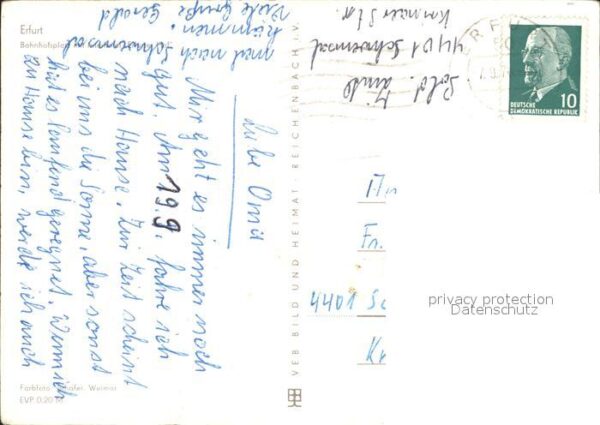 Erfurt
Bahnhofsplatz
Liebe Oma
Mir geht es immer noch
gut. Am 19.9. fahre ich
nach Hause. Zur Zeit scheint
bei uns die Sonne, aber sonst
hat es laufend geregnet. Wenn ich
zu Hause bin, werde ich auch
mal nach Schweinsal
kommen.
Viele Grüße Gerald
Sold.
4401
Farbfoto Schäfer, Weimar
EVP 0,20 M
VEB BILD UND HEIMAT REICHENBACH i. V.
DEUTSCHE
DEMOKRATISCHE REPUBLIK
10
Fr.
4401
privacy protection
Datenschutz